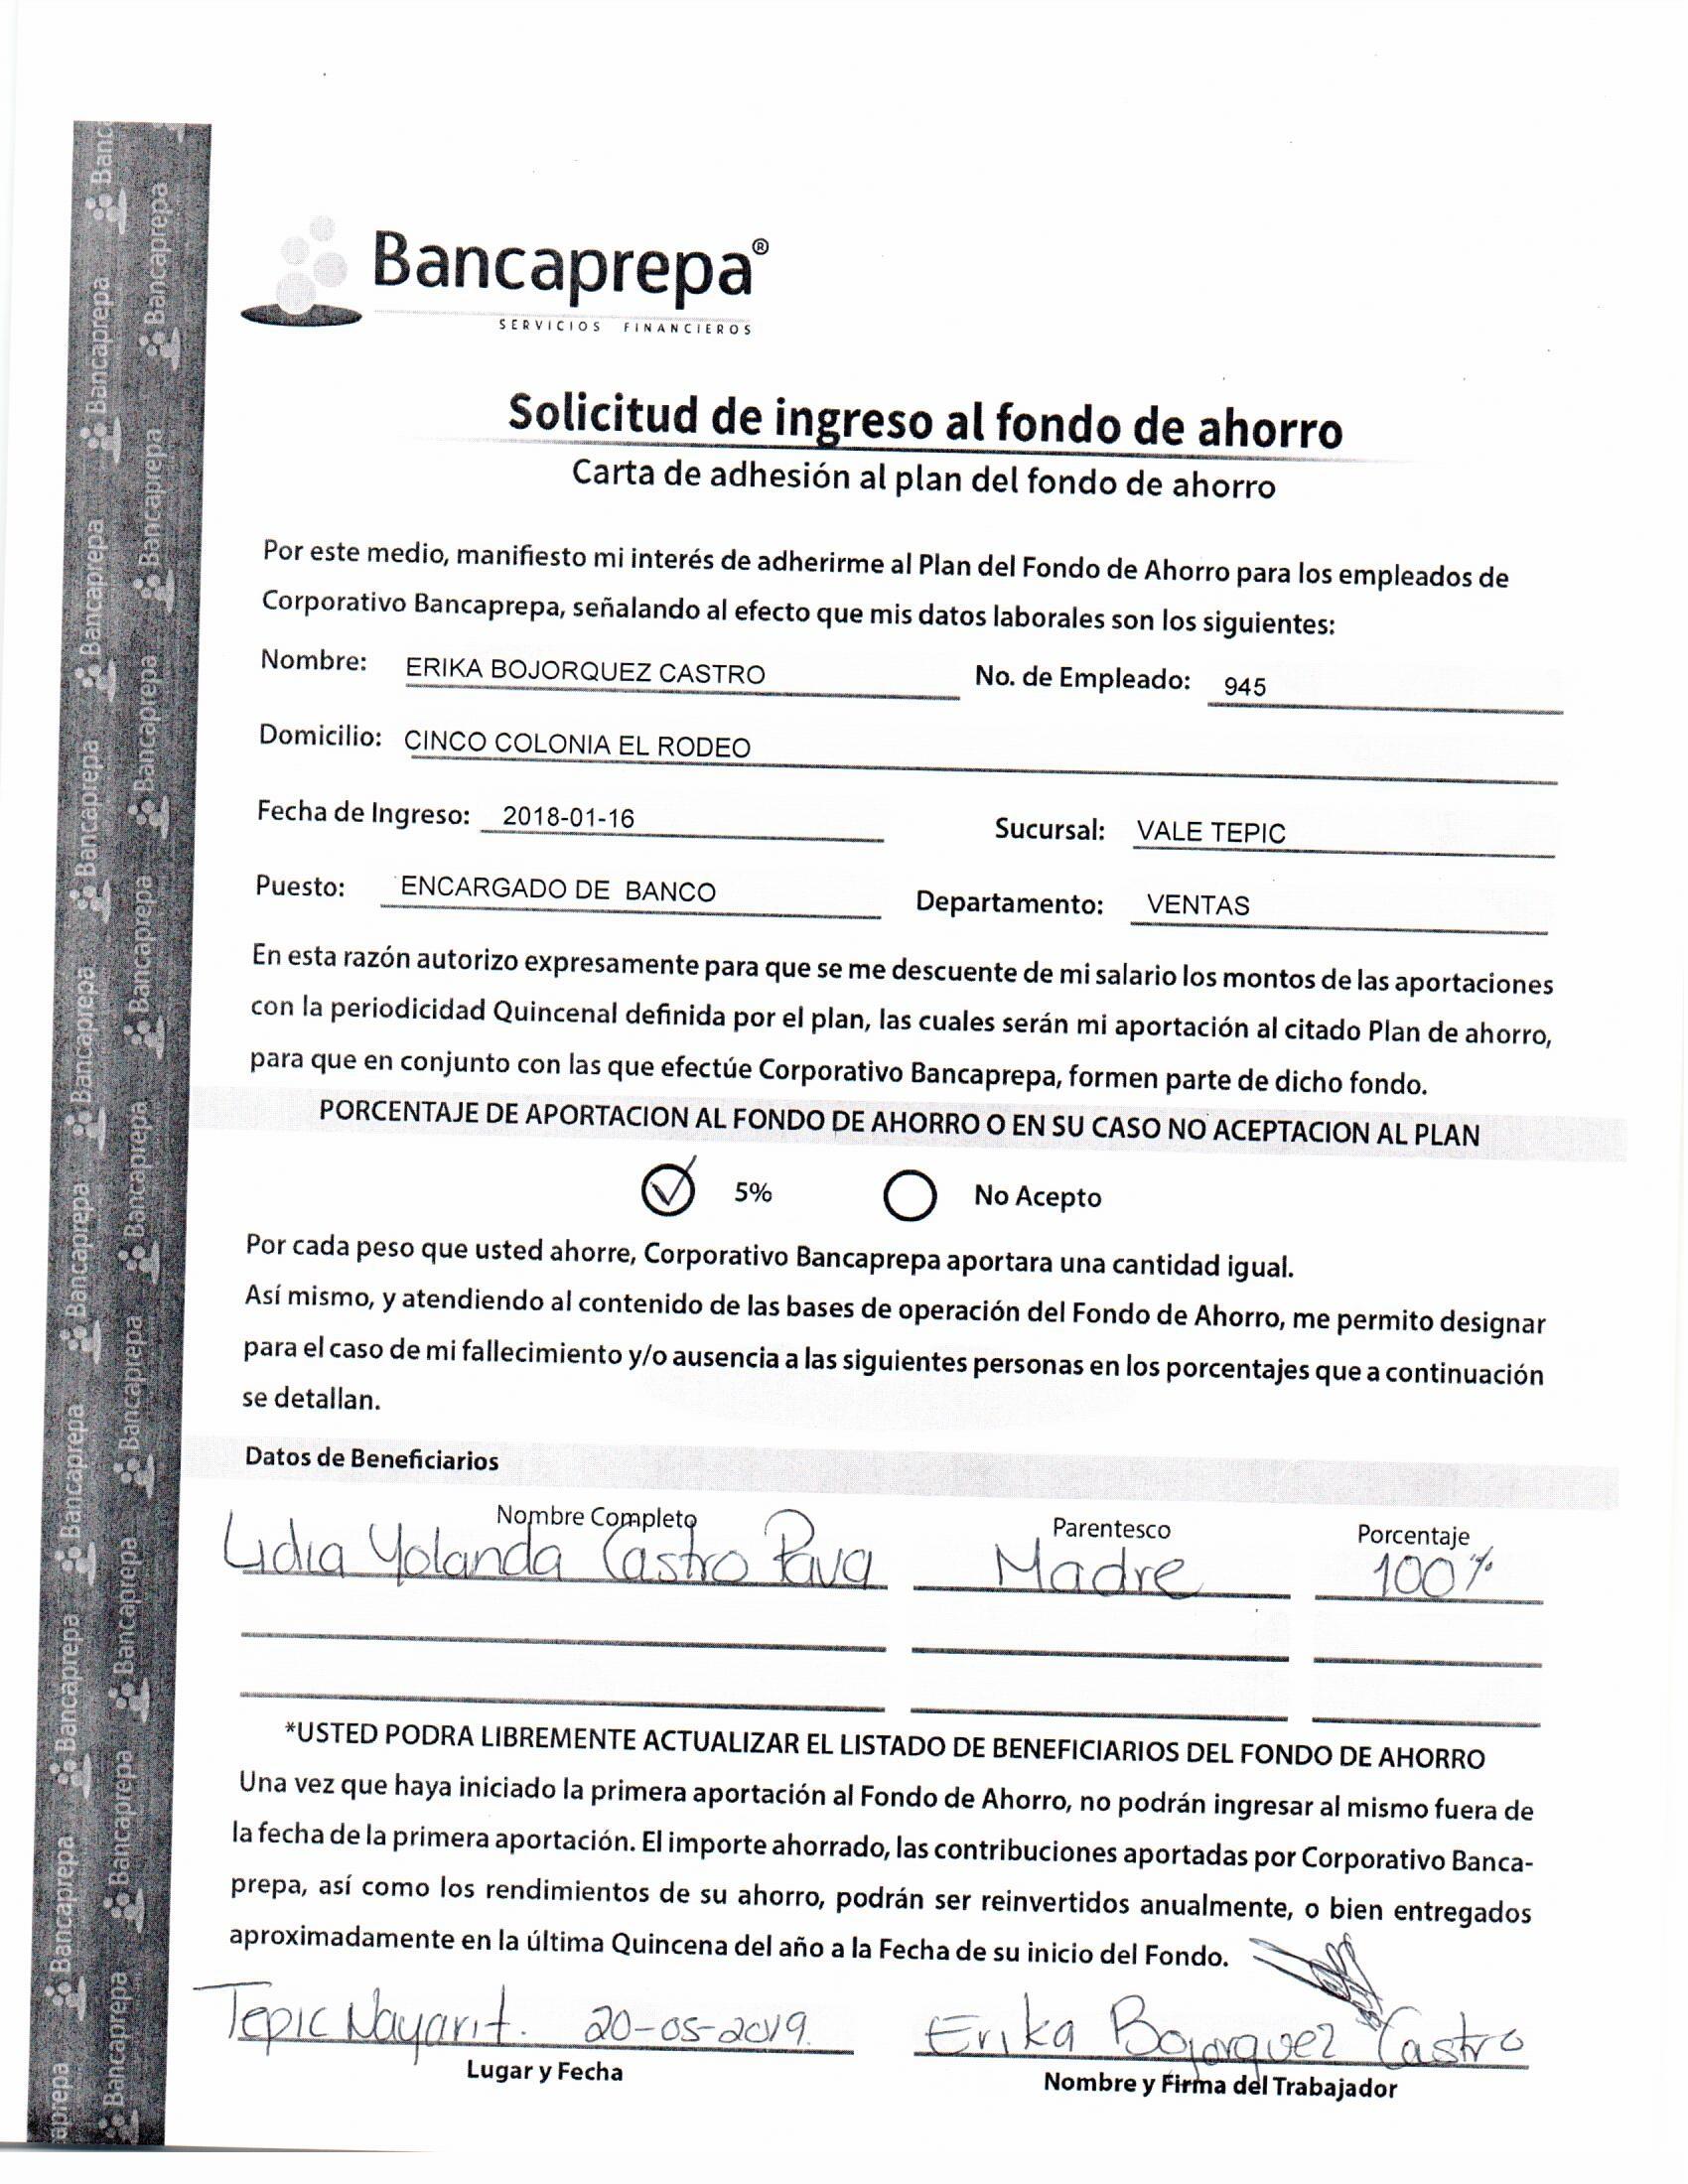 Bancaprepa®
SERVICIOS FINANCIEROS
Solicitud de ingreso al fondo de ahorro
Carta de adhesión al plan del fondo de ahorro
Por este medio, manifiesto mi interés de adherirme al Plan del Fondo de Ahorro para los empleados de
Corporativo Bancaprepa, señalando al efecto que mis datos laborales son los siguientes:
Nombre: ERIKA BOJORQUEZ CASTRO No. de Empleado: 945
Domicilio: CINCO COLONIA EL RODEO
Fecha de Ingreso: 2018-01-16 Sucursal: VALE TEPIC
Puesto: ENCARGADO DE BANCO Departamento: VENTAS
En esta razón autorizo expresamente para que se me descuente de mi salario los montos de las aportaciones
con la periodicidad Quincenal definida por el plan, las cuales serán mi aportación al citado Plan de ahorro,
para que en conjunto con las que efectúe Corporativo Bancaprepa, formen parte de dicho fondo.
PORCENTAJE DE APORTACION AL FONDO DE AHORRO O EN SU CASO NO ACEPTACION AL PLAN
5% No Acepto
Por cada peso que usted ahorre, Corporativo Bancaprepa aportara una cantidad igual.
Así mismo, y atendiendo al contenido de las bases de operación del Fondo de Ahorro, me permito designar
para el caso de mi fallecimiento y/o ausencia a las siguientes personas en los porcentajes que a continuación
se detallan.
Datos de Beneficiarios
Nombre Completo Parentesco Porcentaje
Lidia Yolanda Castro Madre 100%
*USTED PODRA LIBREMENTE ACTUALIZAR EL LISTADO DE BENEFICIARIOS DEL FONDO DE AHORRO
Una vez que haya iniciado la primera aportación al Fondo de Ahorro, no podrán ingresar al mismo fuera de
la fecha de la primera aportación. El importe ahorrado, las contribuciones aportadas por Corporativo Banca-
prepa, así como los rendimientos de su ahorro, podrán ser reinvertidos anualmente, o bien entregados
aproximadamente en la última Quincena del año a la Fecha de su inicio del Fondo.
Tepic Nayarit. 20-05-2019. Erika Bojorquez Castro
Lugar y Fecha Nombre y Firma del Trabajador